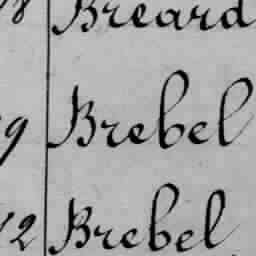 8 Breard
9 Brebel
12 Brebel